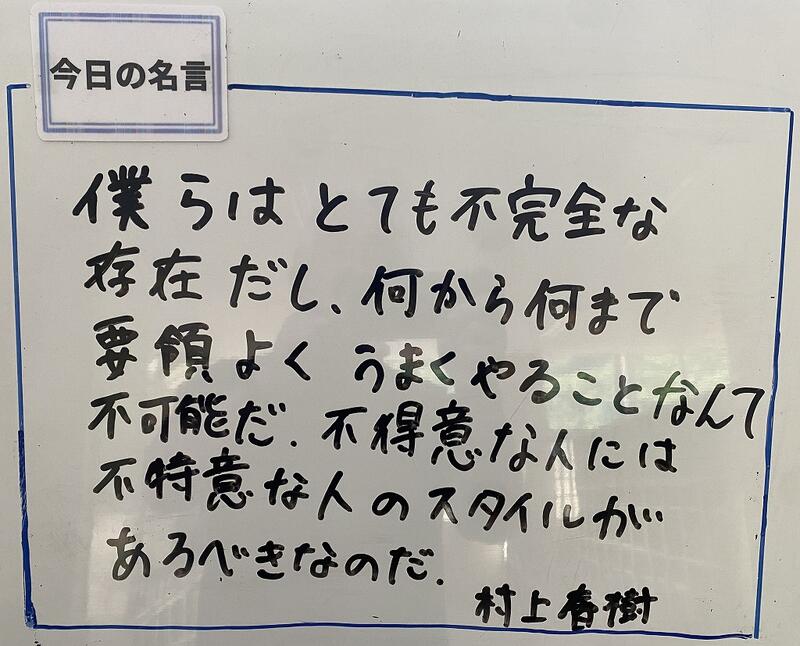 今日の名言
僕らはとても不完全な
存在だし、何から何まで
要領よくうまくやることなんて
不可能だ.不得意な人には
不特意な人のスタイルが
あるべきなのだ.
村上春樹